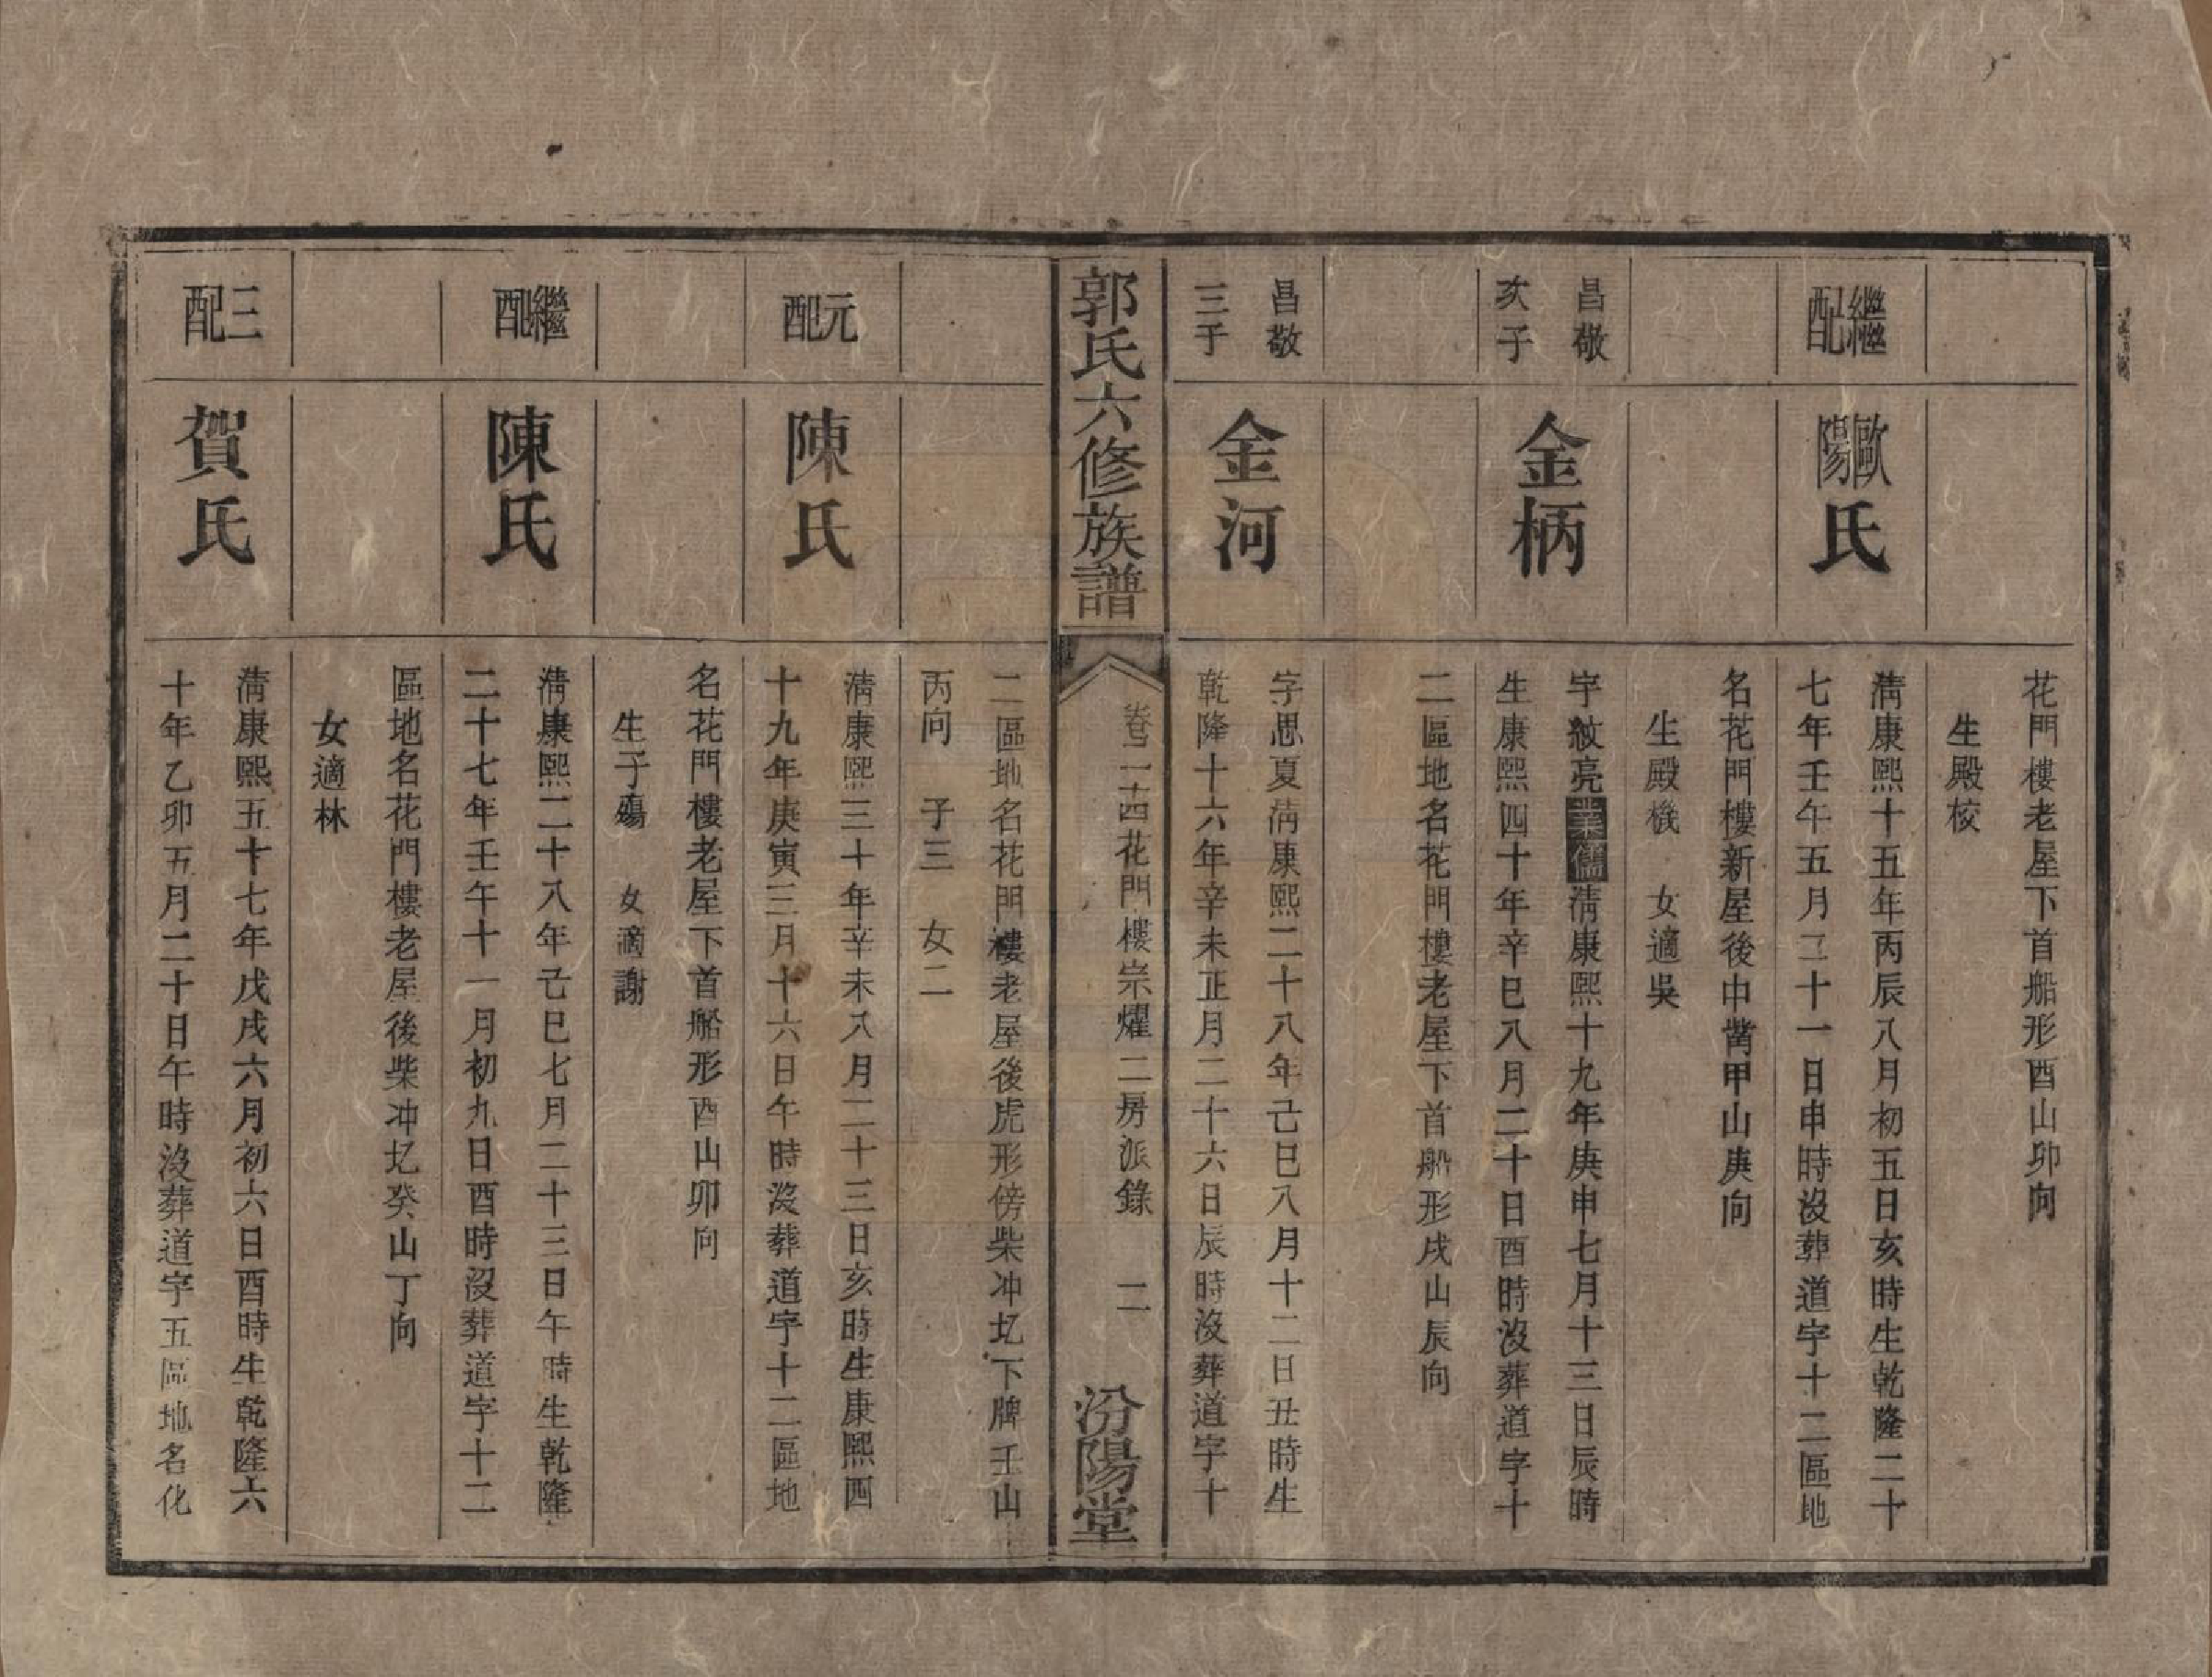 花門樓老屋下首船形酉山卯向
生殿校
繼配
歐陽氏
淸康熙十五年丙辰八月初五日亥時生乾隆二十
七年壬午五月三十一日申時沒葬道字十二區地
名花門樓新屋後中凿甲山庚向
生殿機　女適吳
昌敬
次子
金柄
字紋亮業儒淸康熙十九年庚申七月十三日辰時
生康熙四十年辛巳八月二十日酉時沒葬道字十
二區地名花門樓老屋下首船形戌山辰向
昌敬
三子
金河
字思夏淸康熙二十八年己巳八月十二日丑時生
乾隆十六年辛未正月二十六日辰時沒葬道字十
郭氏六修族譜
卷二十四花門樓宗燿二房派錄　二
汾陽堂
二區地名花門樓老屋後虎形傍柴冲圠下牌壬山
丙向　子三　女二
元配
陳氏
淸康熙三十年辛未八月二十三日亥時生康熙四
十九年庚寅三月十六日午時沒葬道字十二區地
名花門樓老屋下首船形酉山卯向
生子殤　女適謝
繼配
陳氏
淸康熙二十八年己巳七月二十三日午時生乾隆
二十七年壬午十一月初九日酉時沒葬道字十二
區地名花門樓老屋後柴冲圠癸山丁向
女適林
三配
賀氏
淸康熙五十七年戊戌六月初六日酉時生乾隆六
十年乙卯五月二十日午時沒葬道字五區地名化